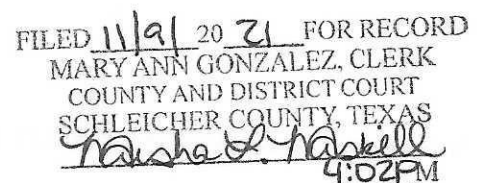 FILED 11/9/ 20 21 FOR RECORD
MARY ANN GONZALEZ, CLERK
COUNTY AND DISTRICT COURT
SCHLEICHER COUNTY, TEXAS
4:02PM